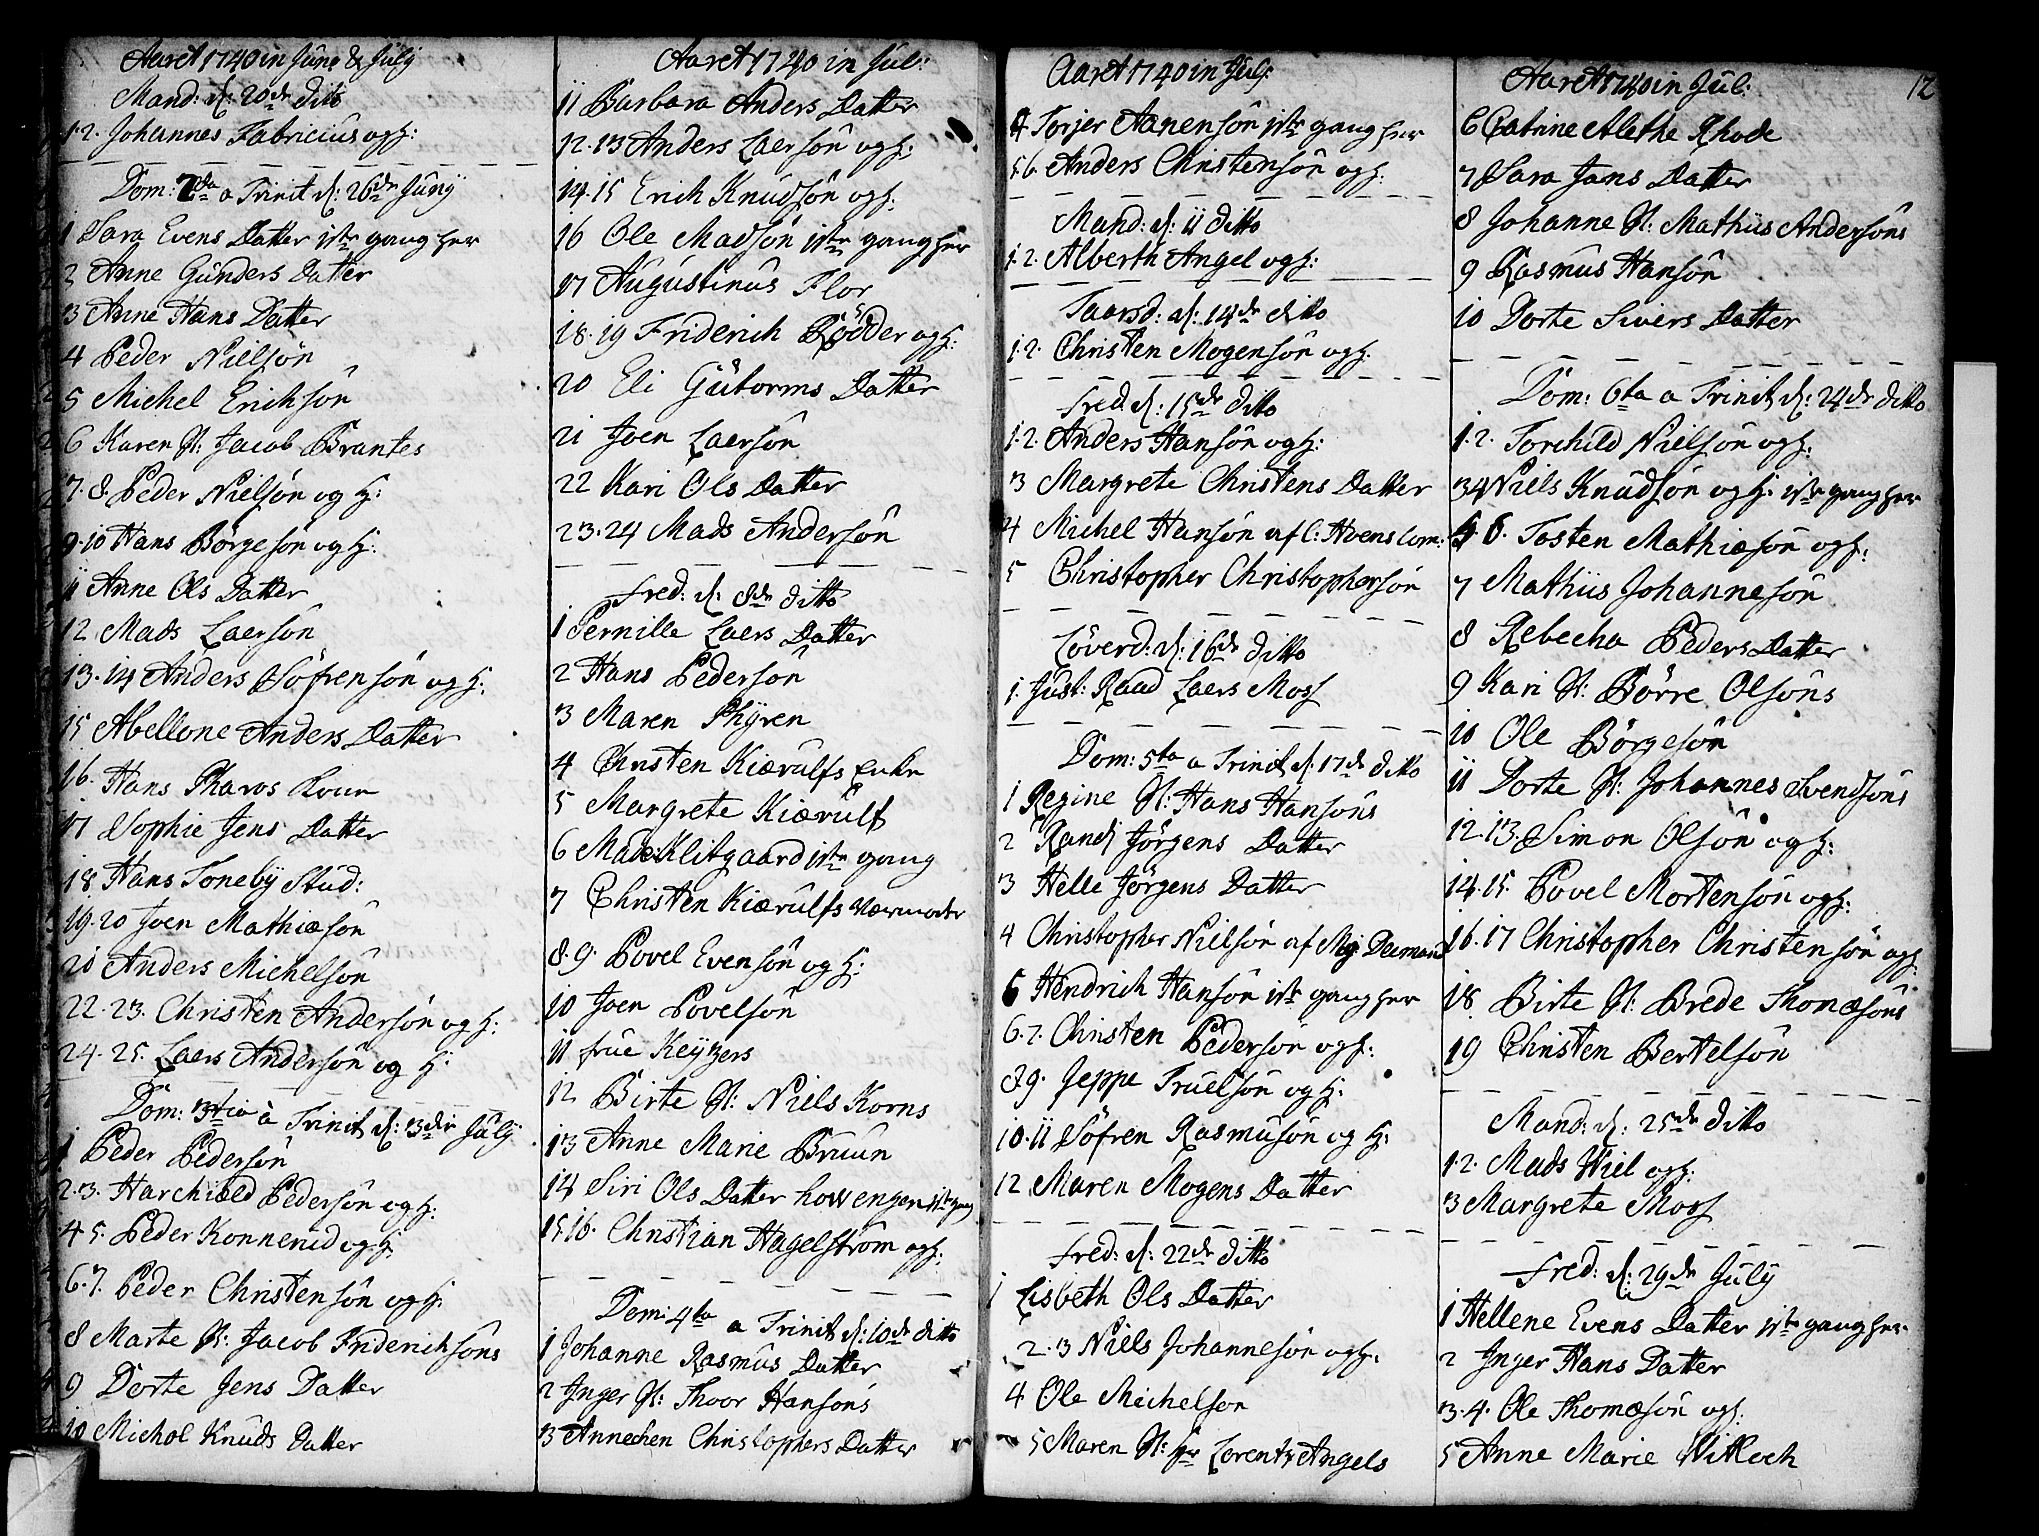 Aaret 1740 in June & July
Mand: d: 20de dito
1.2. Johannes Fabricius og H:
Dom: 2da a Trinit d: 26de Junÿ
1 Sara Evens Datter 1ste gang her
2 Anne Gunders Datter
3 Anne Hans Datter
4 Peder Nielsøn
5 Michel Erichsøn
6 Karen H: Jacob Brantes
7.8. Peder Nielsøn og H:
9.10 Hans Børgesøn og H:
11 Anne Ols Datter
12 Mads Laersøn
13.14 Anders Søfrensøn og H:
15 Abellone Anders Datter
16. Hans Pharos
17 Sophie Jens Datter
18 Hans Tonebÿ Stud:
19.20 Joen Mathiæsøn
21 Anders Michelsøn
22.23. Christen Andersøn og H:
24.25. Laers Andersøn og H:
Dom: 3tia a Trinit d: 3die Julÿ
1 Peder Pedersøn
2.3. Harchield Pedersøn og H:
4.5. Peder Konnerud og H:
6.7. Peder Christensøn og H:
8 Marte H: Jacob Friderichsøns
9 Dorte Jens Datter
10 Michol Knuds Datter
Aaret 1740 in Jul:
11 Barbara Anders Datter
12.13 Anders Laersøn og H:
14.15 Erich Knudsøn og H:
16 Ole Madsøn 1ste gang her
17 Augustinus Flor
18.19 Friderich Rødder og H:
20 Eli Gutorms Datter
21 Joen Laersøn
22 Kari Ols Datter
23.24 Mads Andersøn
Fred: d: 8de ditto
1 Pernille Laers Datter
2 Hans Pedersøn
3 Maren Thÿren
4 Christen Kiærulfs Enke
5 Margrete Kiærulf
6 Made Klitgaard 1ste gang
7 Christen Kiærulfs Værmoder
8.9. Povel Evensøn og H:
10 Joen Povelsøn
11 frue Keÿzers
12 Birte H: Niels Korns
13 Anne Marie Bruun
14 Siri Ols Datter 1ste gang
15.16. Christian Hagelstrøm og H:
Dom: 4ta a Trinit d: 10de ditto
1 Johanne Rasmus Datter
2 Inger H: Thoor Hansøns
3 Annechen Christophers Datter
Aaret 1740 in Jul:
4 Torjer Aanensøn 1ste gang her
5.6. Anders Christensøn og H:
Mand: d: 11 ditto
1.2. Alberth Angel og H:
Taarsd: d: 14de ditto
1.2. Christen Mogensøn og H:
Fred d: 15de ditto
1.2. Anders Hansøn og H:
3 Margrete Christens Datter
4 Michel Hansøn af C: Hvens Com:
5 Christopher Christophersøn
Løverd: d: 16de ditto
1. Just: Raad Laers Moss
Dom: 5ta a Trinit d: 17de ditto
1 Regine H: Hans Hansøns
2 Randi Jørgens Datter
3 Helle Jørgens Datter
4 Christopher Nielsøn af Maj:
5 Hendrich Hansøn 1ste gang her
6.7. Christen Pedersøn og H:
8.9. Jeppe Truelsøn og H:
10.11 Søfren Rasmusøn og H:
12 Maren Mogens Datter
Fred: d: 22de ditto
1 Lisbeth Ols Datter
2.3 Niels Johannesøn og H:
4 Ole Michelsøn
5 Maren H: hr Lorentz Angels
Aaret 1740 in Jul:
12
6 Catrine Alethe Rhode
7 Sara Jans Datter
8 Johanne H: Mathiis Andersøns
9 Rasmus Hansøn
10 Dorte Sivers Datter
Dom: 6ta a Trinit d: 24de ditto
1.2. Torchild Nielsøn og H:
3.4 Niels Knudsøn og H: 1ste gang her
5.6. Tosten Mathiæsøn og H:
7 Mathiis Johannesøn
8 Rebecha Peders Datter
9 Kari H: Børre Olsøns
10 Ole Børgesøn
11 Dorte H: Johannes Svendsøns
12.13. Simon Olsøn og H:
14.15. Povel Mortensøn og H:
16.17 Christopher Christensøn og H:
18 Birte H: Brede Thomæsøns
19 Christen Bertelsøn
Mand: d: 25de ditto
1.2. Mads Wiel og H:
3 Margrete Moss
Fred: d: 29de July
1 Hellene Evens Datter 1ste gang her
2 Inger Hans Datter
3.4. Ole Thomæsøn og H:
5 Anne Marie Witloch